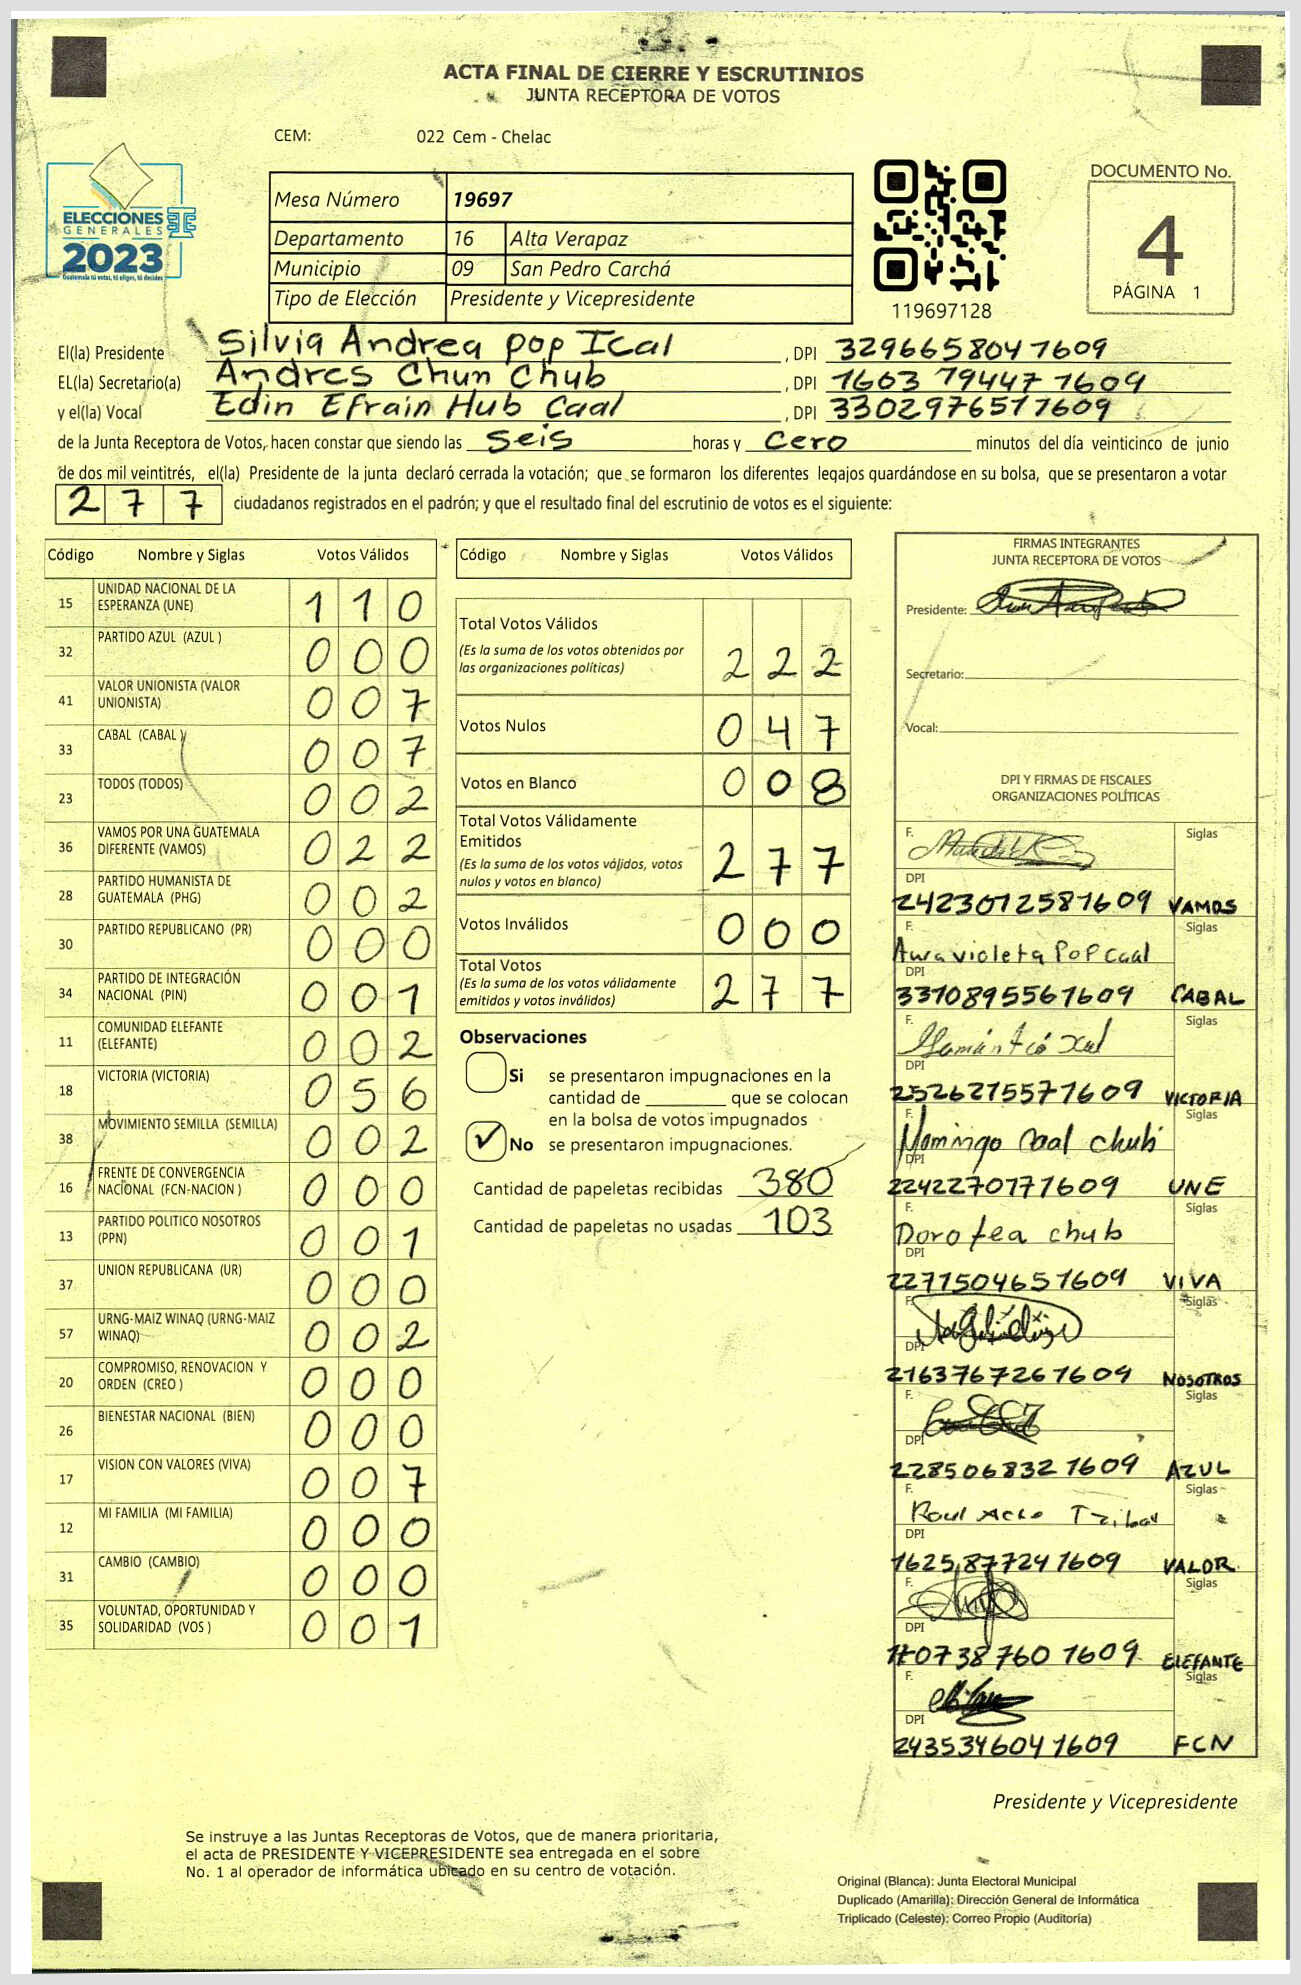 ACTA FINAL DE CIERRE Y ESCRUTINIOS
JUNTA RECEPTORA DE VOTOS
CEM: 022 Cem - Chelac
ELECCIONES
GENERALES
2023
Guatemala tú votas, tú eliges, tú decides
Mesa Número 19697
Departamento 16 Alta Verapaz
Municipio 09 San Pedro Carchá
Tipo de Elección Presidente y Vicepresidente
119697128
DOCUMENTO No.
4
PÁGINA 1
El(la) Presidente Silvia Andrea pop Ical , DPI 3296658041609
EL(la) Secretario(a) Andres Chun Chub , DPI 1603 79447 1609
y el(la) Vocal Edin Efrain Hub Caal , DPI 3302976571609
de la Junta Receptora de Votos, hacen constar que siendo las seis horas y cero minutos del día veinticinco de junio
de dos mil veintitrés, el(la) Presidente de la junta declaró cerrada la votación; que se formaron los diferentes legajos guardándose en su bolsa, que se presentaron a votar
277 ciudadanos registrados en el padrón; y que el resultado final del escrutinio de votos es el siguiente:
Código Nombre y Siglas Votos Válidos
15 UNIDAD NACIONAL DE LA
ESPERANZA (UNE) 110
32 PARTIDO AZUL (AZUL ) 000
41 VALOR UNIONISTA (VALOR
UNIONISTA) 007
33 CABAL (CABAL ) 007
23 TODOS (TODOS) 002
36 VAMOS POR UNA GUATEMALA
DIFERENTE (VAMOS) 022
28 PARTIDO HUMANISTA DE
GUATEMALA (PHG) 002
30 PARTIDO REPUBLICANO (PR) 000
34 PARTIDO DE INTEGRACIÓN
NACIONAL (PIN) 001
11 COMUNIDAD ELEFANTE
(ELEFANTE) 002
18 VICTORIA (VICTORIA) 056
38 MOVIMIENTO SEMILLA (SEMILLA) 002
16 FRENTE DE CONVERGENCIA
NACIONAL (FCN-NACION ) 000
13 PARTIDO POLITICO NOSOTROS
(PPN) 001
37 UNION REPUBLICANA (UR) 000
57 URNG-MAIZ WINAQ (URNG-MAIZ
WINAQ) 002
20 COMPROMISO, RENOVACION Y
ORDEN (CREO ) 000
26 BIENESTAR NACIONAL (BIEN) 000
17 VISION CON VALORES (VIVA) 007
12 MI FAMILIA (MI FAMILIA) 000
31 CAMBIO (CAMBIO) 000
35 VOLUNTAD, OPORTUNIDAD Y
SOLIDARIDAD (VOS ) 001
Código Nombre y Siglas Votos Válidos
Total Votos Válidos
(Es la suma de los votos obtenidos por
las organizaciones políticas) 222
Votos Nulos 047
Votos en Blanco 008
Total Votos Válidamente
Emitidos
(Es la suma de los votos válidos, votos
nulos y votos en blanco) 277
Votos Inválidos 000
Total Votos
(Es la suma de los votos válidamente
emitidos y votos inválidos) 277
Observaciones
Si se presentaron impugnaciones en la
cantidad de ________ que se colocan
en la bolsa de votos impugnados
✓ No se presentaron impugnaciones.
Cantidad de papeletas recibidas 380
Cantidad de papeletas no usadas 103
FIRMAS INTEGRANTES
JUNTA RECEPTORA DE VOTOS
Presidente:
Secretario:
Vocal:
DPI Y FIRMAS DE FISCALES
ORGANIZACIONES POLÍTICAS
F. Siglas
DPI
2423012581609 VAMOS
F. Siglas
Aura violeta Pop Caal
DPI
3310895561609 CABAL
F. Siglas
DPI
2526215571609 VICTORIA
F. Siglas
Domingo Caal chub
DPI
2242270171609 UNE
F. Siglas
Dorotea chub
DPI
2271504651609 VIVA
F. Siglas
DPI
2163767261609 NOSOTROS
F. Siglas
DPI
2285068321609 AZUL
F. Siglas
Raul
DPI
1625877241609 VALOR
F. Siglas
DPI
1707387601609 ELEFANTE
F. Siglas
DPI
2435346041609 FCN
Presidente y Vicepresidente
Se instruye a las Juntas Receptoras de Votos, que de manera prioritaria,
el acta de PRESIDENTE Y VICEPRESIDENTE sea entregada en el sobre
No. 1 al operador de informática ubicado en su centro de votación.
Original (Blanca): Junta Electoral Municipal
Duplicado (Amarilla): Dirección General de Informática
Triplicado (Celeste): Correo Propio (Auditoría)